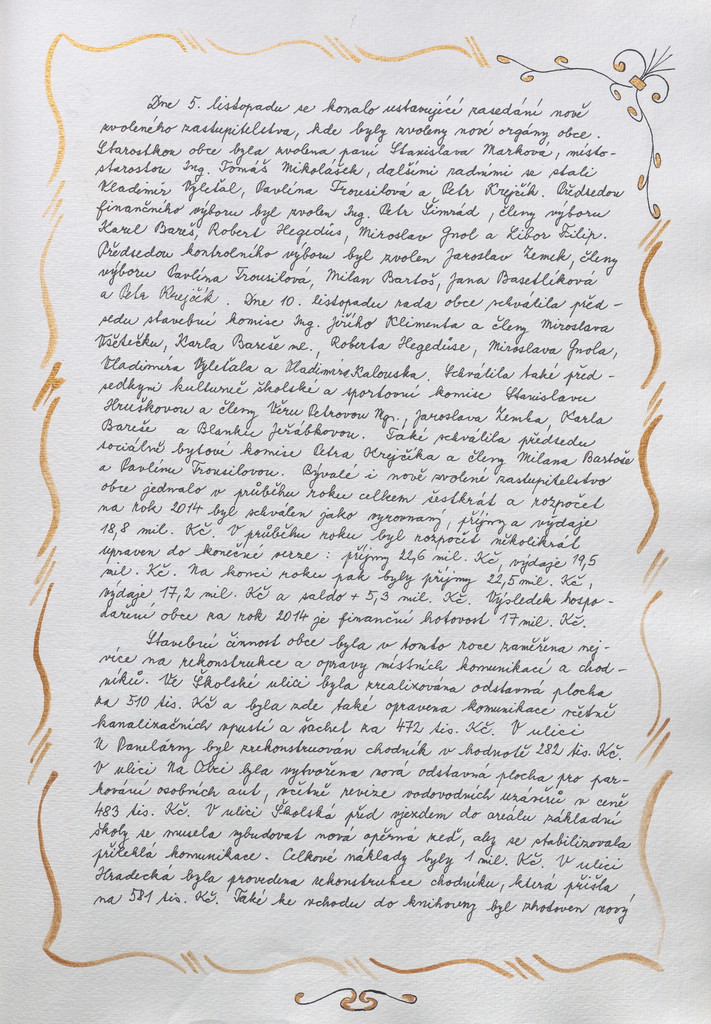 Dne 5. listopadu se konalo ustavující zasedání nově
zvoleného zastupitelstva, kde byly zvoleny nové orgány obce.
Starostkou obce byla zvolena paní Stanislava Marková, místo-
starostou Ing. Tomáš Mikolášek, dalšími radními se stali
Vladimír Vyleťal, Pavlína Trousilová a Petr Krejčík. Předsedou
finančního výboru byl zvolen Ing. Petr Šimrád, členy výboru
Karel Bareš, Robert Hegedüs, Miroslav Gnol a Libor Filip.
Předsedou kontrolního výboru byl zvolen Jaroslav Zemek, členy
výboru Pavlína Trousilová, Milan Bartoš, Jana Basetlíková
a Petr Krejčík. Dne 10. listopadu rada obce schválila před-
sedu stavební komise Ing. Jiřího Klimenta a členy Miroslava
Všetečku, Karla Bareše ml., Roberta Hegedüse, Miroslava Gnola,
Vladimíra Vyleťala a Vladimíra Kalouska. Schválila také před-
sedkyni kulturně školské a sportovní komise Stanislavu
Hruškovou a členy Věru Petrovou Mgr., Jaroslava Zemka, Karla
Bareše a Blanku Jeřábkovou. Také schválila předsedu
sociálně bytové komise Petra Krejčíka a členy Milana Bartoše
a Pavlínu Trousilovou. Bývalé i nově zvolené zastupitelstvo
obce jednalo v průběhu roku celkem šestkrát a rozpočet
na rok 2014 byl schválen jako vyrovnaný, příjmy a výdaje
18,8 mil. Kč. V průběhu roku byl rozpočet několikrát
upraven do konečné verze: příjmy 22,6 mil. Kč, výdaje 19,5
mil. Kč. Na konci roku pak byly příjmy 22,5 mil. Kč,
výdaje 17,2 mil. Kč a saldo + 5,3 mil. Kč. Výsledek hospo-
daření obce za rok 2014 je finanční hotovost 17 mil. Kč.
Stavební činnost obce byla v tomto roce zaměřena nej-
více na rekonstrukce a opravy místních komunikací a chod-
níků. Ve Školské ulici byla zrealizována odstavná plocha
za 510 tis. Kč a byla zde také opravena komunikace včetně
kanalizačních vpustí a šachet za 472 tis. Kč. V ulici
U Panelárny byl zrekonstruován chodník v hodnotě 282 tis. Kč.
V ulici Na Obci byla vytvořena nová odstavná plocha pro par-
kování osobních aut, včetně revize vodovodních uzávěrů v ceně
483 tis. Kč. V ulici Školská před vjezdem do areálu základní
školy se musela vybudovat nová opěrná zeď, aby se stabilizovala
přilehlá komunikace. Celkové náklady byly 1 mil. Kč. V ulici
Hradecká byla provedena rekonstrukce chodníku, která přišla
na 581 tis. Kč. Také ke vchodu do knihovny byl zhotoven nový